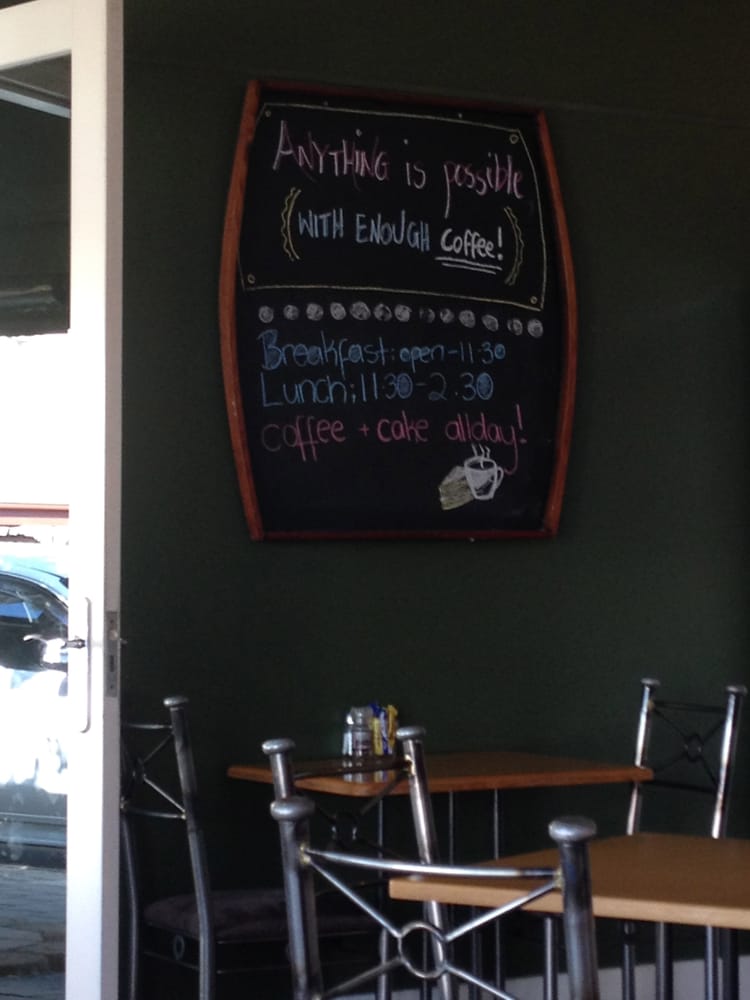 ANYTHING is possible
(WITH ENOUGH coffee!)
Breakfast: open-11:30
Lunch; 11:30-2.30
coffee + cake allday!